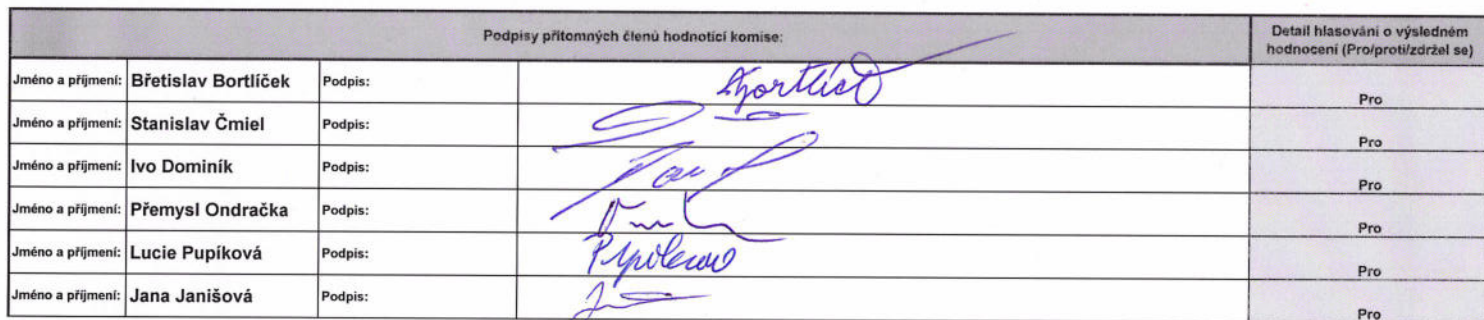 Podpisy přítomných členů hodnotící komise: Detail hlasování o výsledném
hodnocení (Pro/proti/zdržel se)
Jméno a příjmení: Břetislav Bortlíček Podpis: Pro
Jméno a příjmení: Stanislav Čmiel Podpis: Pro
Jméno a příjmení: Ivo Dominík Podpis: Pro
Jméno a příjmení: Přemysl Ondračka Podpis: Pro
Jméno a příjmení: Lucie Pupíková Podpis: Pro
Jméno a příjmení: Jana Janišová Podpis: Pro